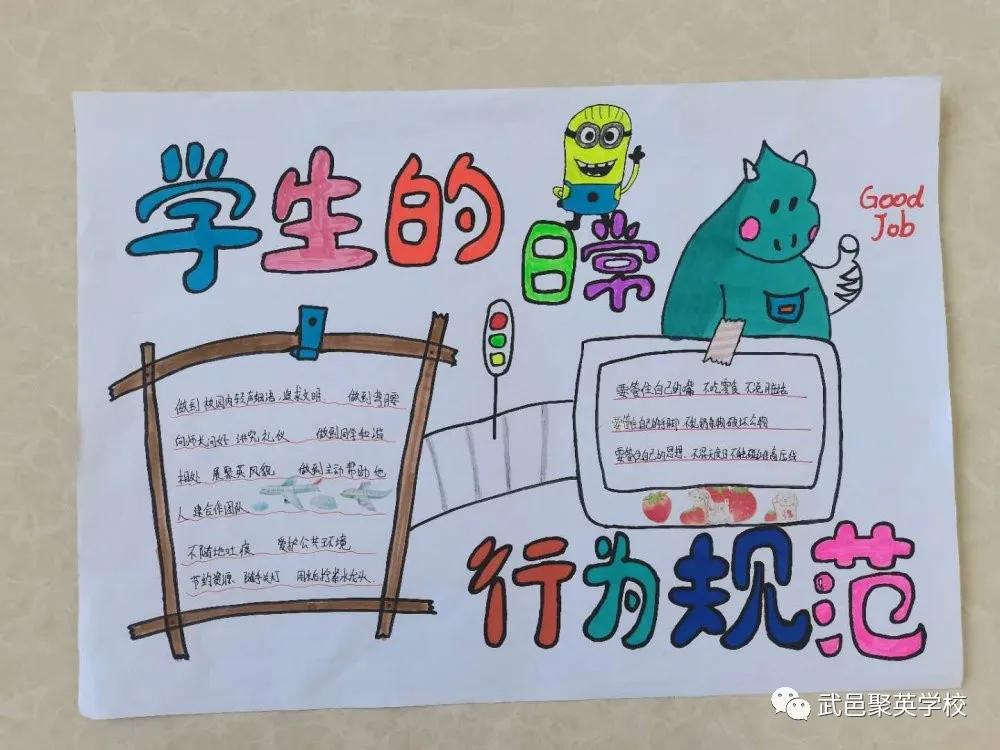 学生的
日常
Good
Job
做到校园内轻声细语,追求文明 做到弯腰
向师长问好 讲究礼仪 做到同学和谐
相处 展聚英风貌 做到主动帮助他
人 建合作团队
不随地吐痰 爱护公共环境
节约资源 随手关灯 用来拧紧水龙头.
要管住自己的嘴 不吃零食 不说脏话
要管住自己的手脚 不乱扔杂物 破坏公物
要管住自己的思想 不得 触碰 高压线
行为规范
武邑聚英学校